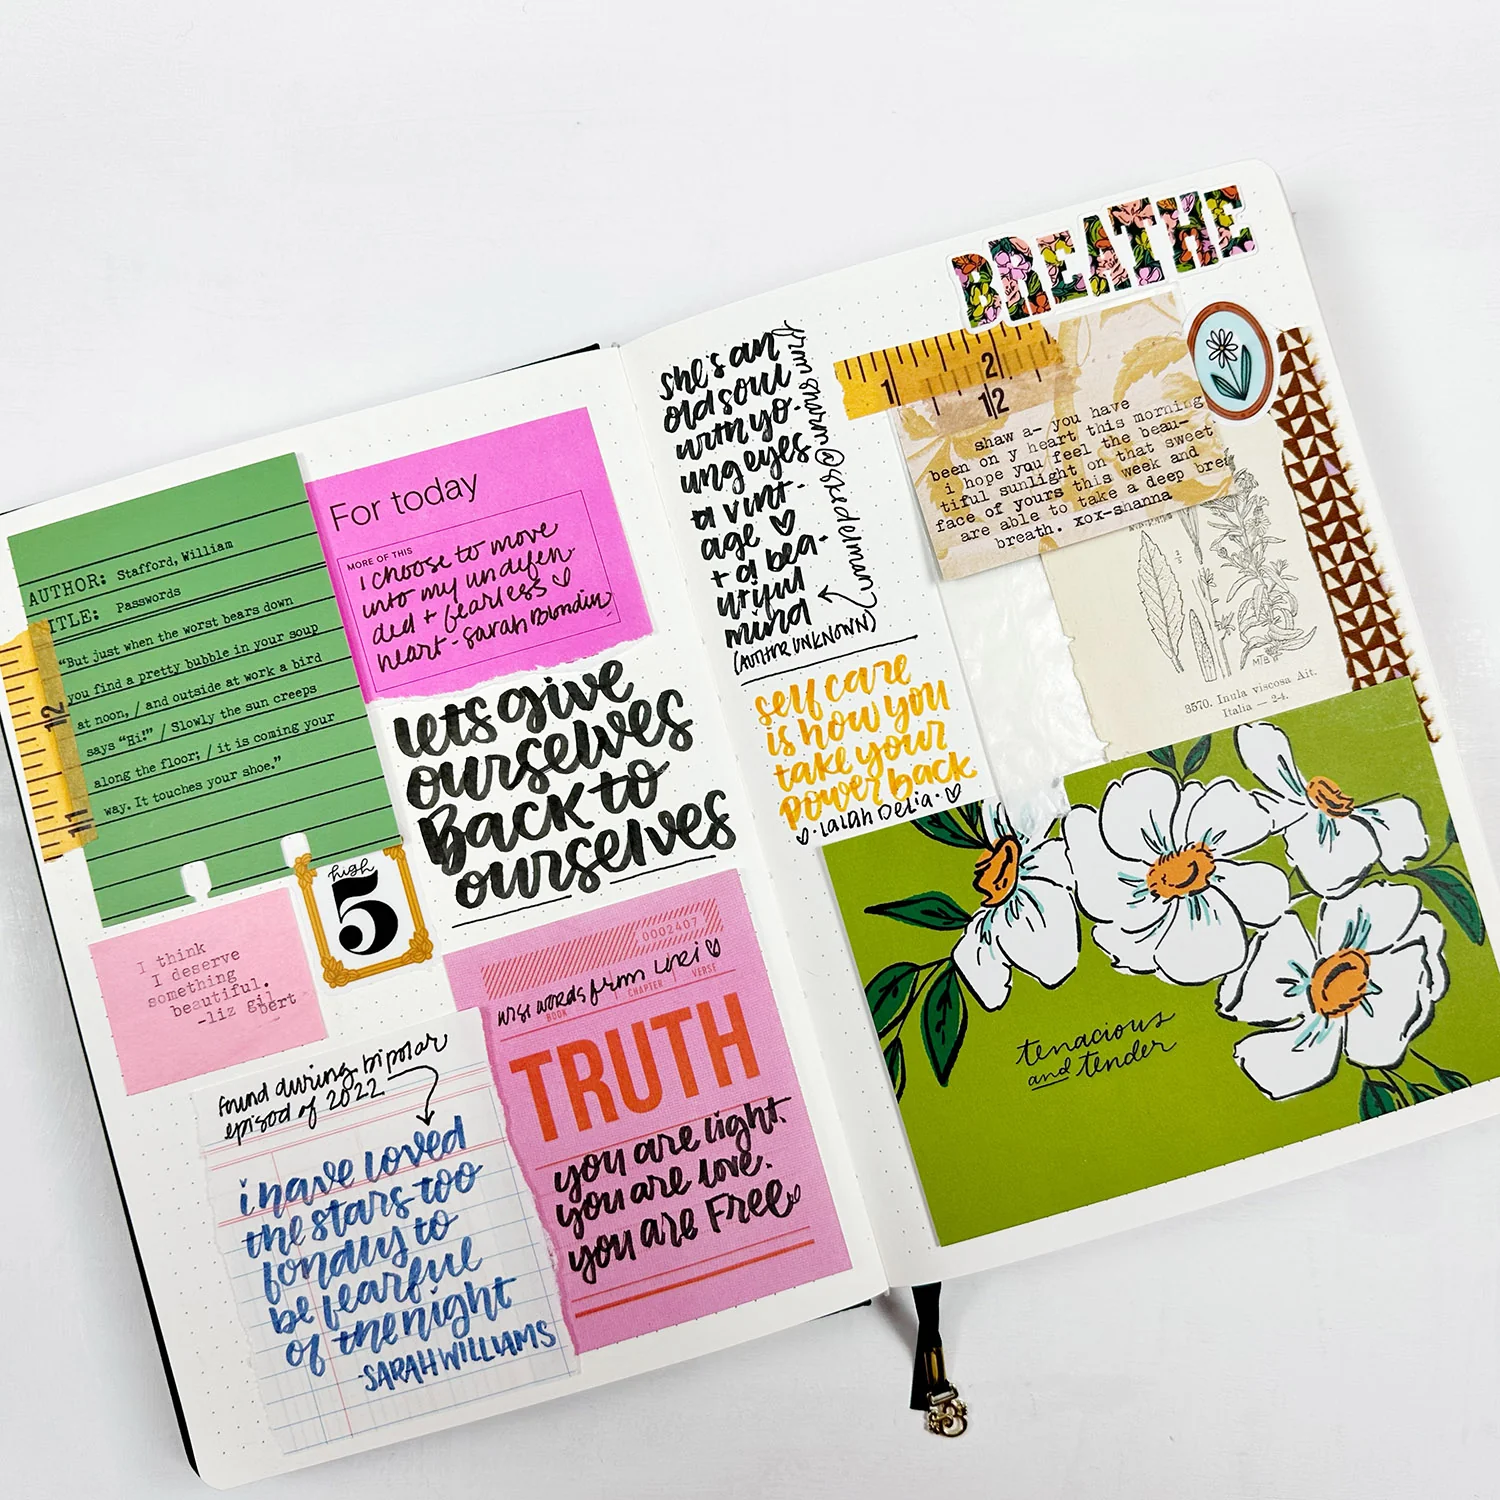 AUTHOR: Stafford, William
TITLE: Passwords
"But just when the worst bears down
you find a pretty bubble in your soup
at noon, / and outside at work a bird
says "Hi!" / Slowly the sun creeps
along the floor; / it is coming your
way. It touches your shoe."
12
11
For today
MORE OF THIS
i choose to move
into my undefen-
ded + fearless
heart - sarah Blondin
lets give
ourselves
Back to
ourselves
high
5
I think
I deserve
something
beautiful.
-liz gilbert
found during bipolar
episod of 2022
i have loved
the stars too
fondly to
be fearful
of the night
-SARAH WILLIAMS
0002407
wise words from Lori
BOOK CHAPTER VERSE
TRUTH
you are light.
you are love.
you are Free
she's an
old soul
with yo-
ung eyes
a vint-
age
+ a bea-
utiful
mind
(AUTHOR UNKNOWN)
self care
is how you
take your
power back
· Lalah Delia ·
BREATHE
1
2
12
shaw a- you have
been on y heart this morning
i hope you feel the beau-
tiful sunlight on that sweet
face of yours this week and
are able to take a deep brea
breath. xox-shanna
3570. Inula viscosa Ait.
Italia — 2-4.
tenacious
and tender